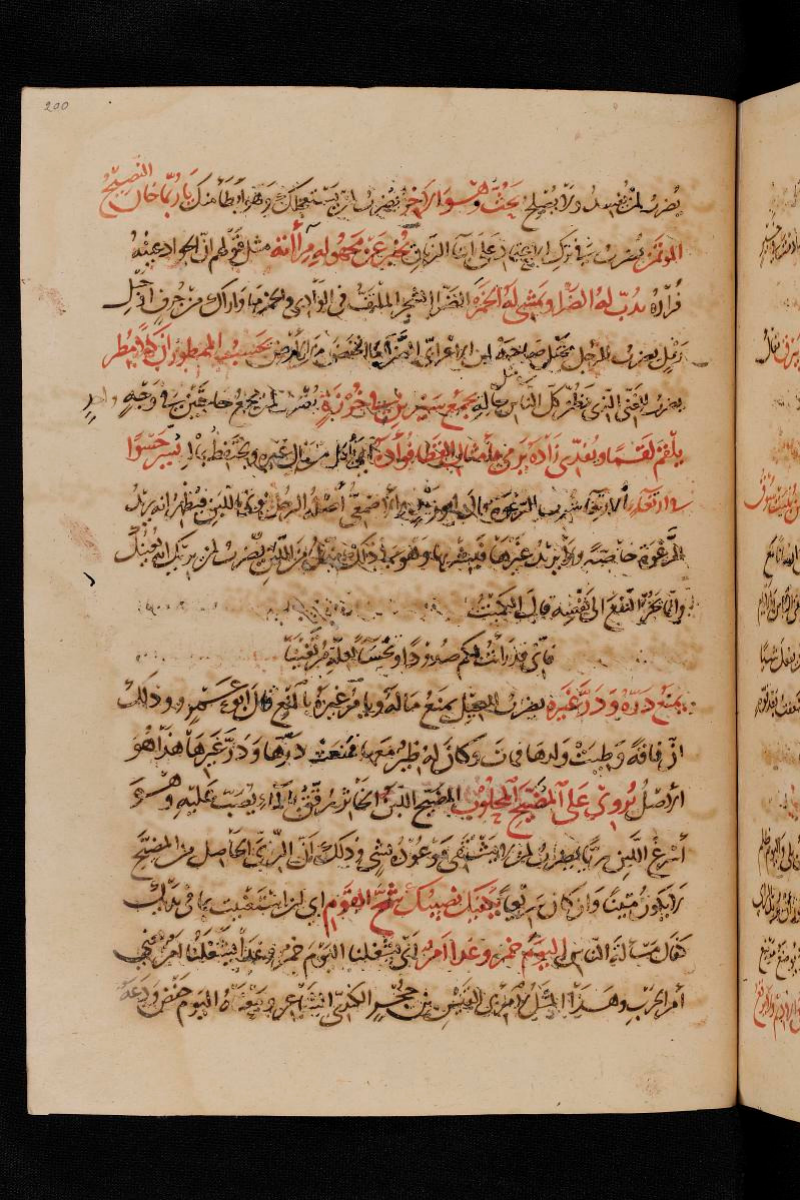 200
يضرب لمن يفسد ولا يصلح يحث وهو الآخر يضرب لمن يستعجلك وهو أبطأ منك يا ربما خان النصيح
المؤتمن يضرب في ترك الاعتماد على أبناء الزمان يخبر عن مجهوله مرآته مثل قولهم إن الجواد عينه
فراره يدب له الضراء ويمشي له الخمر الضراء الشجر الملتف في الوادي والخمر ما واراك من جرف أو حبل
رمل يضرب للرجل يختل صاحبه ابن الأعرابي الضراء ما انخفض من الأرض يحسب الممطور أن كلا مطر
يضرب للغني الذي يظن كل الناس في مثل حاله يجمع سيرين في خرزة يضرب لمن يجمع حاجتين في وجه واحد
يلقم لقما ويفدي زاده يرمي بأمثال القطا فؤاده أي يأكل من مال غيره ويحتفظ بماله يسر حسوا
في ارتغاء الارتغاء شرب الرغوة قال أبو زيد والأصمعي أصله الرجل يؤتى باللبن فيظهر أنه يريد
الرغوة خاصة ولا يريد غيرها فيشربها وهو في ذلك ينال من اللبن يضرب لمن يريك أنه يعينك
وإنما يجر النفع إلى نفسه قال الكميت
فإني قد رأيت لكم صدودا وتحساء بعلة مرتغينا
يمنع دره ودر غيره يضرب للبخيل يمنع ماله ويأمر غيره بالمنع قال أبو عمرو وذلك
أن ناقة وطئت ولدها فمات وكان له ظئر معها فمنعت درها ودر غيرها هذا هو
الأصل يروى على الضيح المحلوب الضيح اللبن الخاثر رقق بالماء يصب عليه وهو
أسرع اللبن ريا يضرب لمن لا يشتفى موعوده بشيء وذلك أن الري الحاصل من الضيح
لا يكون متينا وإن كان سريعا يكفيك نصيبك شح القوم أي إن استغنيت بما في يديك
كفاك مسألة الناس اليوم خمر وغدا أمر أي يشغلنا اليوم خمر وغدا يشغلنا أمر يعني
أمر الحرب وهذا المثل لامرئ القيس بن حجر الكندي الشاعر ومعناه اليوم خفض ودعة